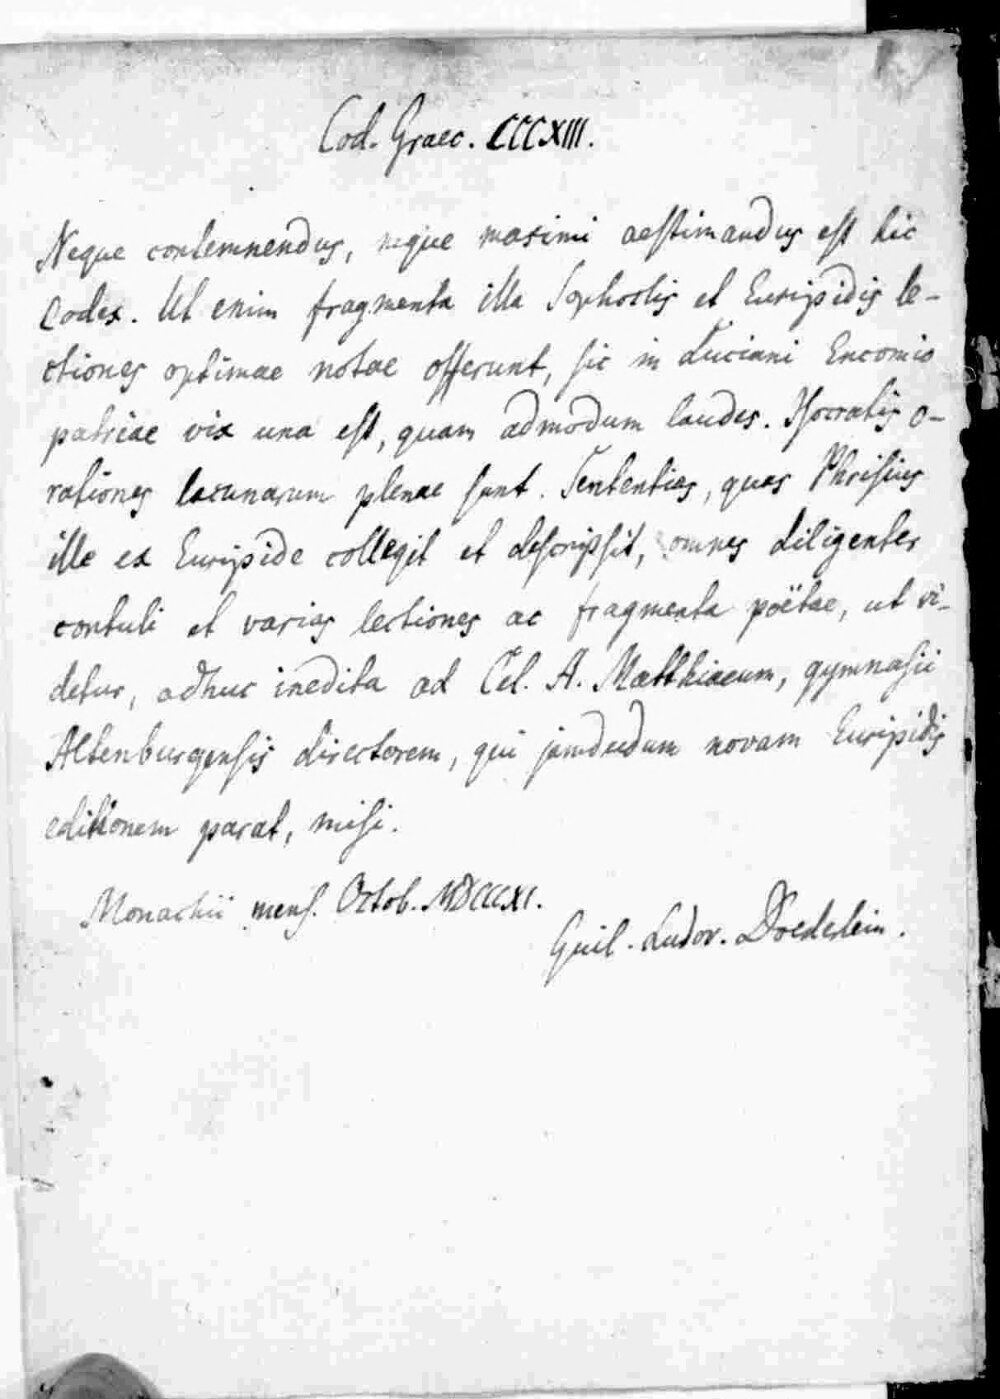 Cod. Graec. CCCXIII.
Neque contemnendus, neque maximi aestimandus est hic
Codex. Ut enim fragmenta illa Sophoclis et Euripidis le-
ctiones optimae notae offerunt, sic in Luciani Encomio
patriae vix una est, quam admodum laudes. Isocratis o-
rationes lacunarum plenae sunt. Sententias, quas Phrisius
ille ex Euripide collegit et descripsit, omnes diligenter
contuli et varias lectiones ac fragmenta poëtae, ut vi-
detur, adhuc inedita ad Cel. A. Matthiaeum, gymnasii
Altenburgensis directorem, qui jamdudum novam Euripidis
editionem parat, misi.
Monachii mens. Octob. MDCCCXI.
Guil. Ludov. Doederlein.